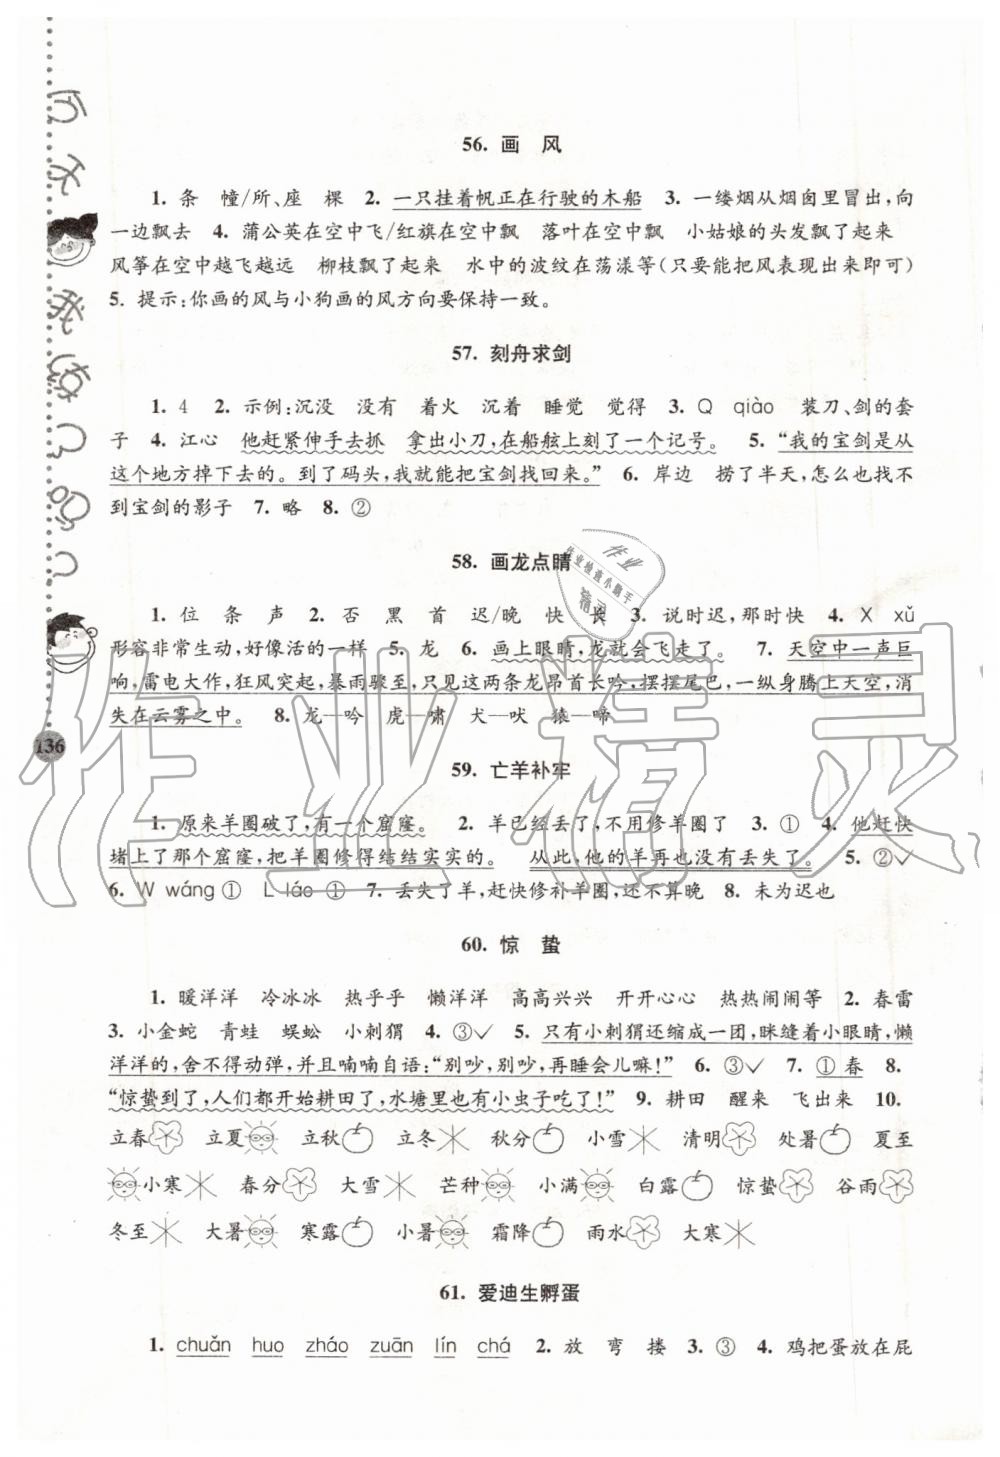 56. 画　风
1. 条　幢/所、座　棵　2. 一只挂着帆正在行驶的木船　3. 一缕烟从烟囱里冒出,向
一边飘去　4. 蒲公英在空中飞/红旗在空中飘　落叶在空中飘　小姑娘的头发飘了起来
风筝在空中越飞越远　柳枝飘了起来　水中的波纹在荡漾等(只要能把风表现出来即可)
5. 提示:你画的风与小狗画的风方向要保持一致。
57. 刻舟求剑
1. 4　2. 示例:沉没　没有　着火　沉着　睡觉　觉得　3. Q　qiào　装刀、剑的套
子　4. 江心　他赶紧伸手去抓　拿出小刀,在船舷上刻了一个记号。　5. “我的宝剑是从
这个地方掉下去的。到了码头,我就能把宝剑找回来。”　6. 岸边　捞了半天,怎么也找不
到宝剑的影子　7. 略　8. ②
58. 画龙点睛
1. 位　条　声　2. 否　黑　首　迟/晚　快　长　3. 说时迟,那时快　4. X　xǔ
形容非常生动,好像活的一样　5. 龙　6. 画上眼睛,龙就会飞走了。　7. 天空中一声巨
响,雷电大作,狂风突起,暴雨骤至,只见这两条龙昂首长吟,摆摆尾巴,一纵身腾上天空,消
失在云雾之中。　8. 龙—吟　虎—啸　犬—吠　猿—啼
136
59. 亡羊补牢
1. 原来羊圈破了,有一个窟窿。　2. 羊已经丢了,不用修羊圈了　3. ①　4. 他赶快
堵上了那个窟窿,把羊圈修得结结实实的。　从此,他的羊再也没有丢失了。　5. ②✓
6. W wáng ①　L láo ①　7. 丢失了羊,赶快修补羊圈,还不算晚　8. 未为迟也
60. 惊　蛰
1. 暖洋洋　冷冰冰　热乎乎　懒洋洋　高高兴兴　开开心心　热热闹闹等　2. 春雷
3. 小金蛇　青蛙　蜈蚣　小刺猬　4. ③✓　5. 只有小刺猬还缩成一团,眯缝着小眼睛,懒
洋洋的,舍不得动弹,并且喃喃自语:“别吵,别吵,再睡会儿嘛!”　6. ③✓　7. ①春　8.
“惊蛰到了,人们都开始耕田了,水塘里也有小虫子吃了!”　9. 耕田　醒来　飞出来　10.
立春　立夏　立秋　立冬　秋分　小雪　清明　处暑　夏至
小寒　春分　大雪　芒种　小满　白露　惊蛰　谷雨
冬至　大暑　寒露　小暑　霜降　雨水　大寒
61. 爱迪生孵蛋
1. chuǎn　huo　zháo　zuān　lín　chá　2. 放　弯　搂　3. ③　4. 鸡把蛋放在屁
作业
作业检查小助手
作业精灵